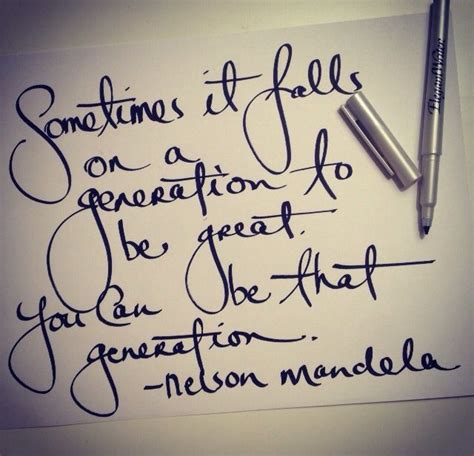 Sometimes it falls
on a
generation to
be great.
You Can be that
generation.
-nelson mandela